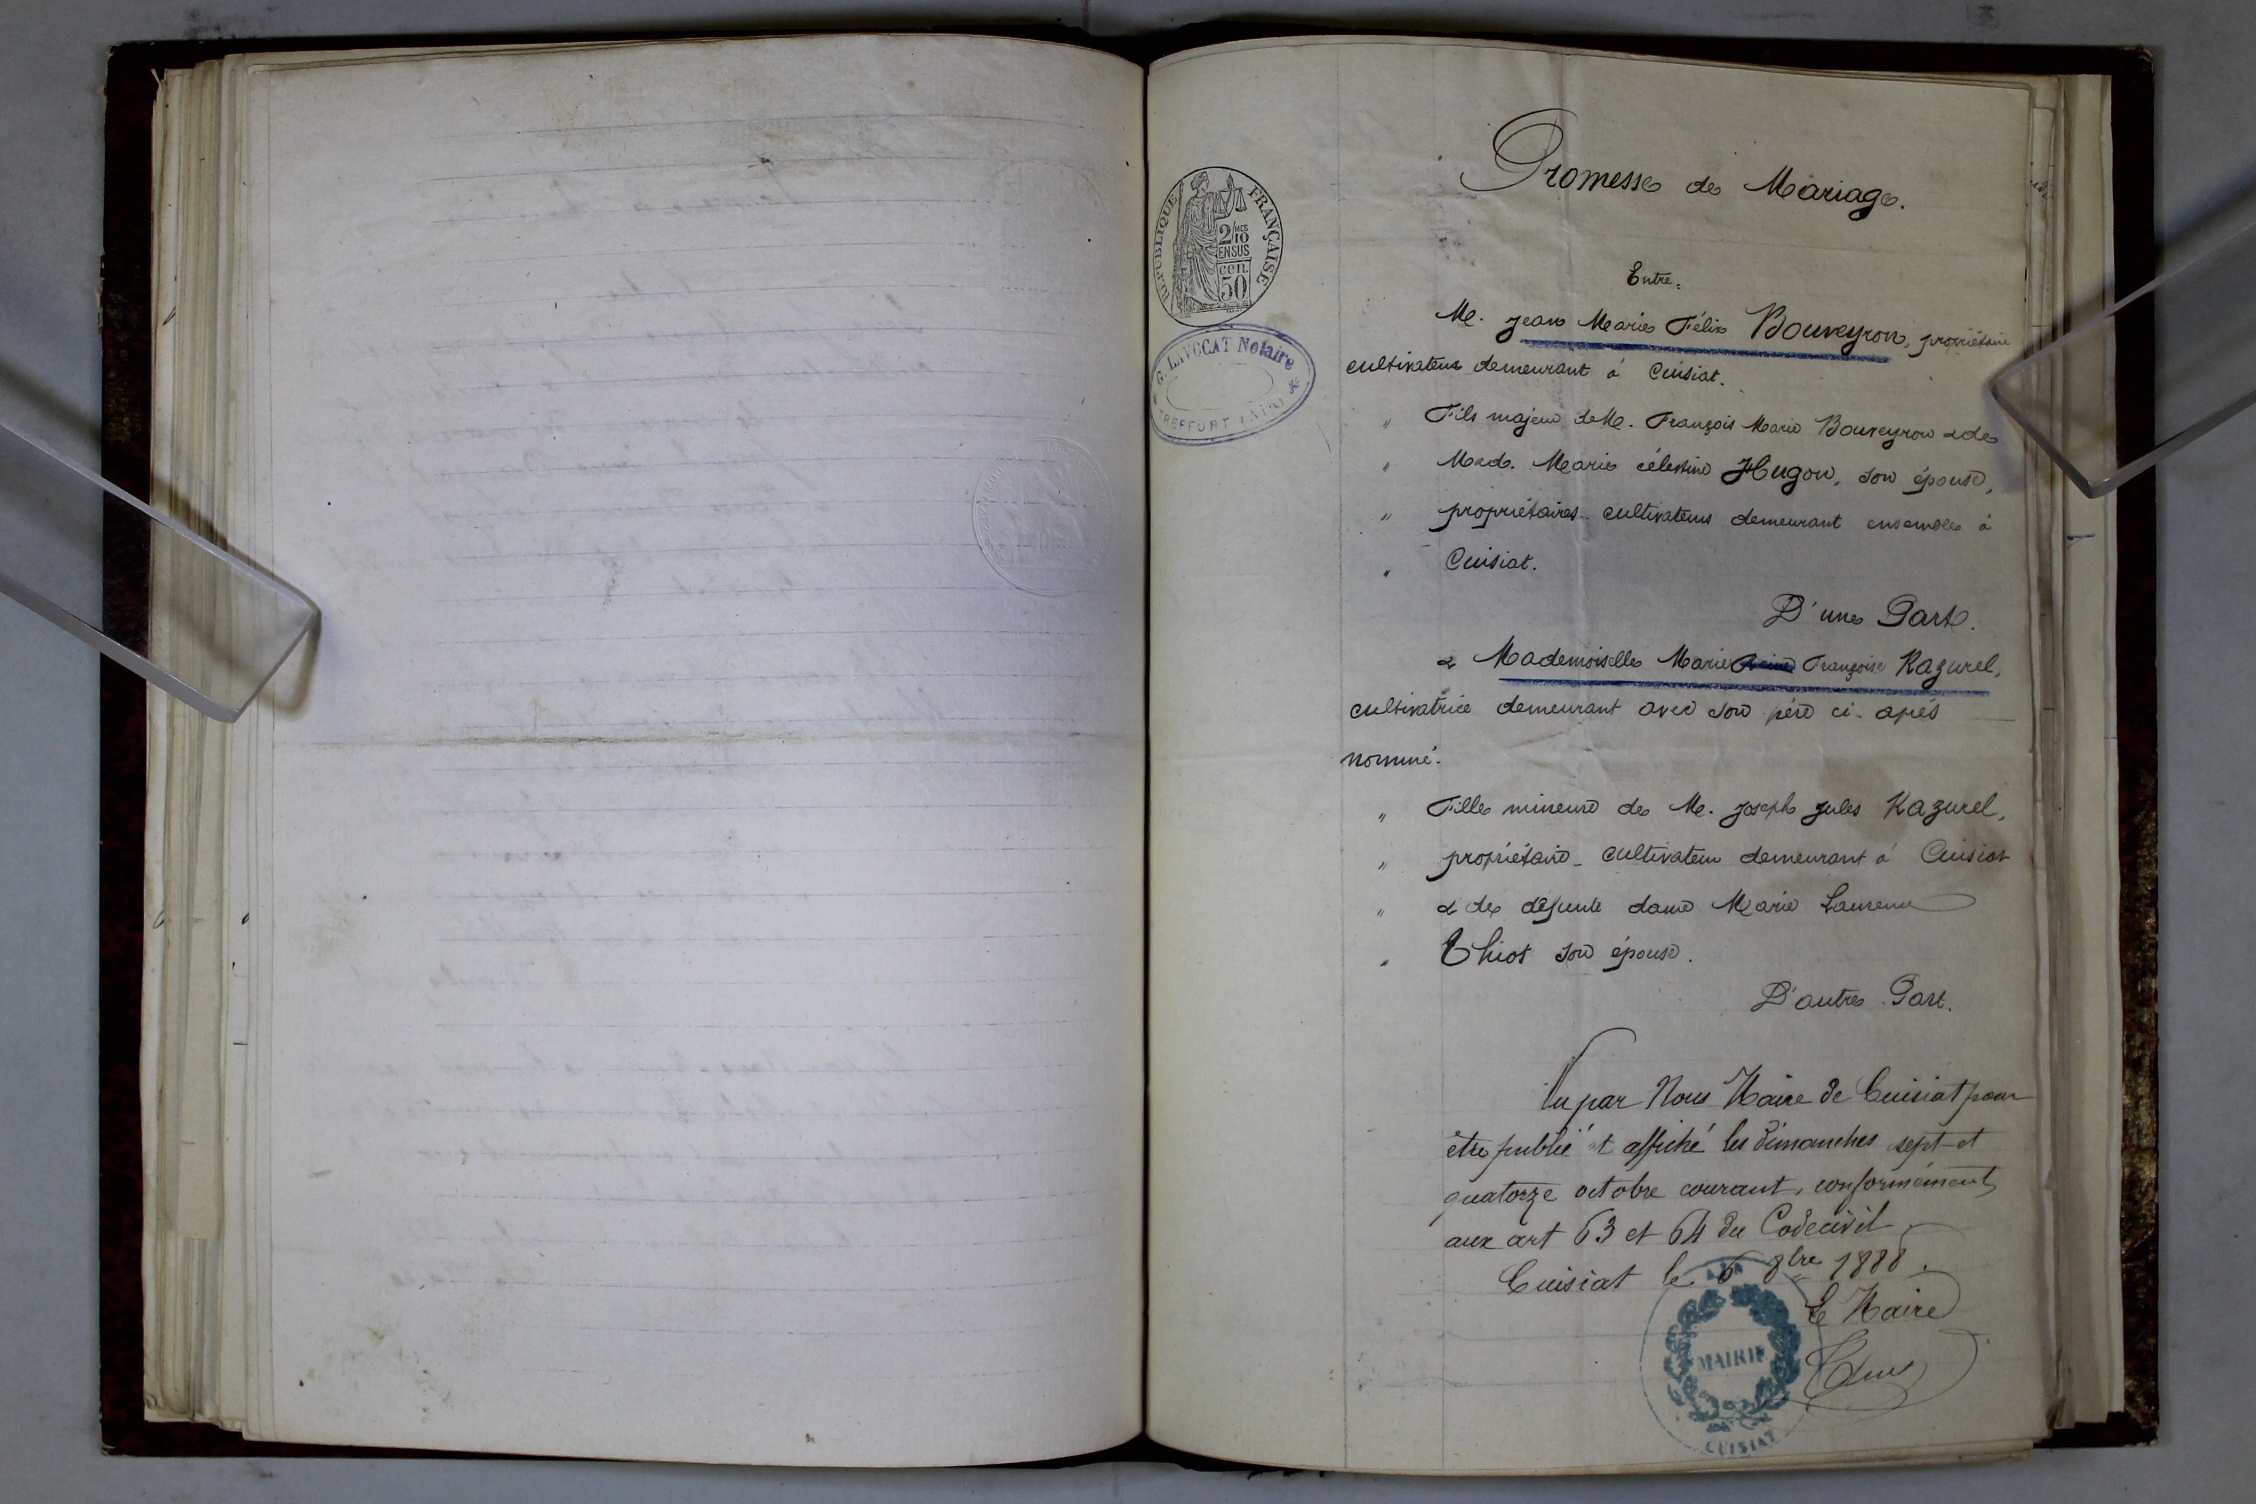 Promesse de Mariage.
RÉPUBLIQUE FRANÇAISE
2/10 MES
EN SUS
cen.
50
G. LAVOCAT Notaire
TREFFORT (AIN)
Entre.
M. Jean Marie Félix Bouveyron, propriétaire
cultivateur demeurant à Cuisiat.
" Fils majeur de M. François Marie Bouveyron & de
" Mad. Marie célestine Hugon, son épouse,
" propriétaires-cultivateurs demeurant ensemble à
" Cuisiat.
D'une Part.
& Mademoiselle Marie Françoise Razurel,
cultivatrice demeurant avec son père ci-après
nommé.
" Fille mineure de M. Joseph Jules Razurel,
" propriétaire-cultivateur demeurant à Cuisiat
" & de défunte dame Marie
" Thiot son épouse.
D'autre Part.
Vu par Nous Maire de Cuisiat pour
être publié et affiché les dimanches sept et
quatorze octobre courant, conformément
aux art 63 et 64 du Code civil
Cuisiat le 6 8bre 1888.
Le Maire
AIN
MAIRIE
CUISIAT